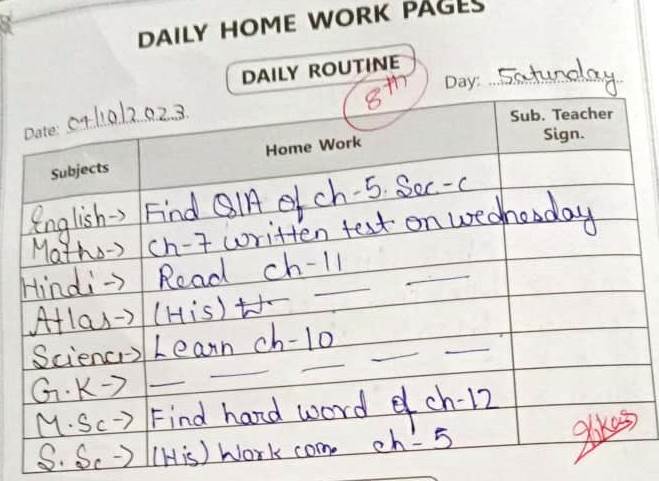 DAILY HOME WORK PAGES
DAILY ROUTINE
8th
Day: Saturday
Date: 07/10/2023
Subjects Home Work Sub. Teacher Sign.
English-> Find Q/A of ch-5. Sec-c
Maths-> Ch-7 written test on wednesday
Hindi-> Read ch-11
Atlas-> (His) — —
Science-> Learn ch-10
G.K-> — — — — —
M.Sc-> Find hard word of ch-12
S.Sc-> (His) Work com. ch-5